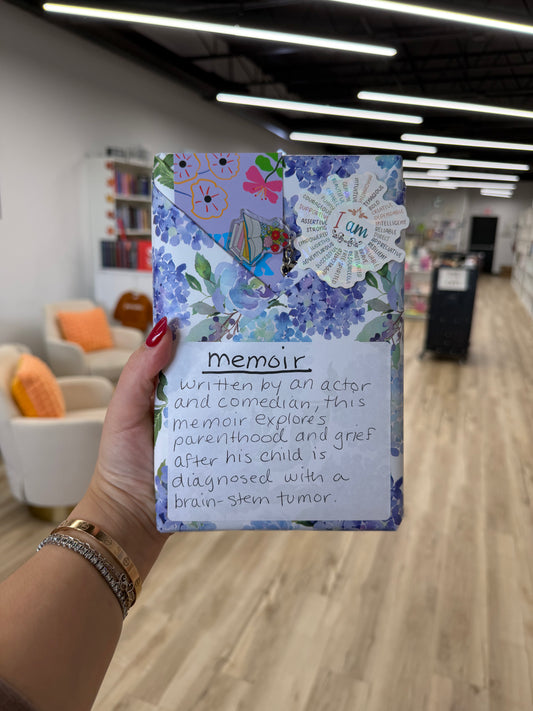 I am
memoir
written by an actor
and comedian, this
memoir explores
parenthood and grief
after his child is
diagnosed with a
brain-stem tumor.